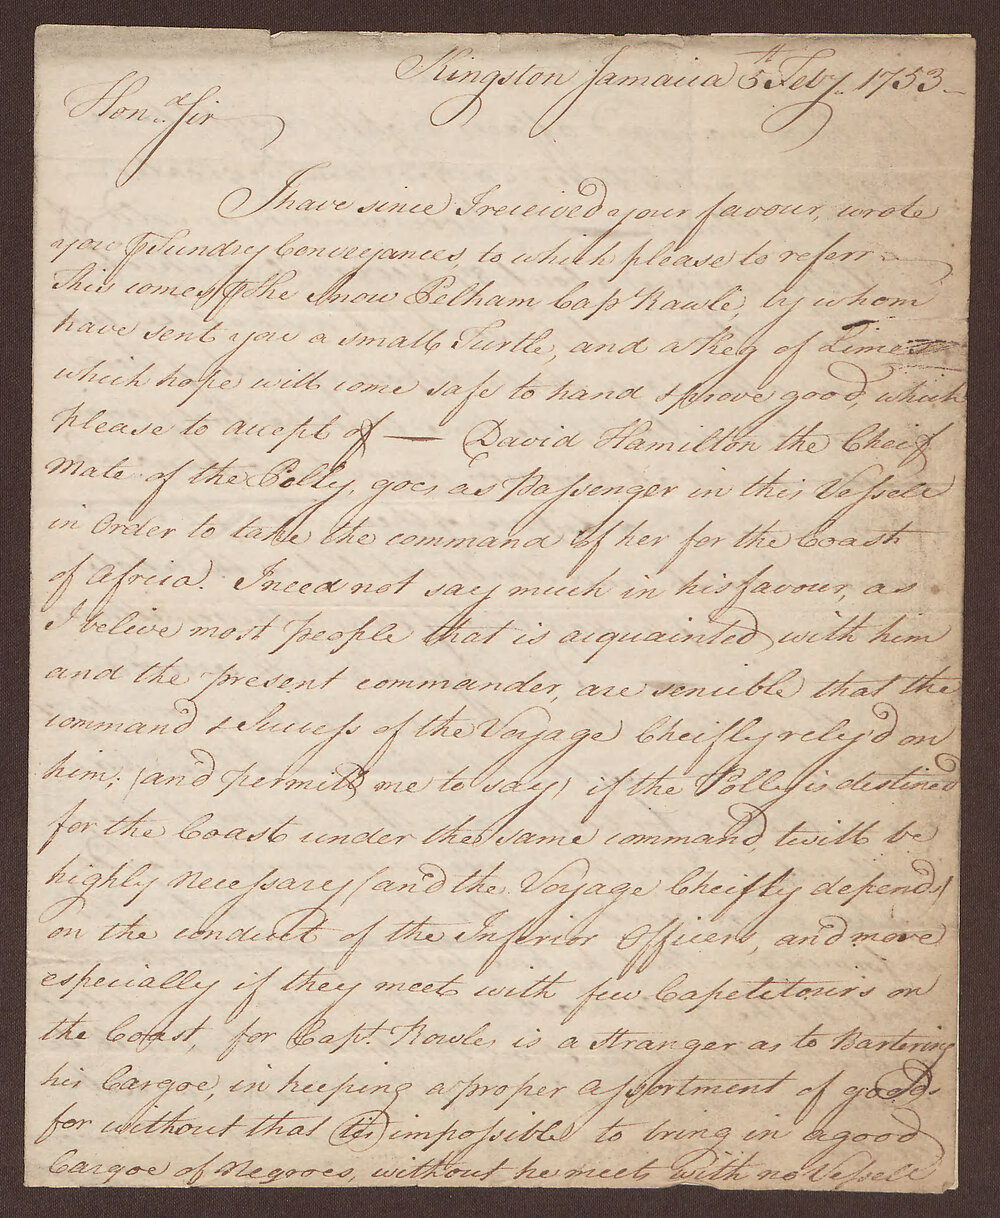 Kingston Jamaica 5th Feby. 1753
Hond. Sir
I have since I received your favour, wrote
you ⅌ Sundry Conveyances, to which please to referr
This comes ⅌ the Snow Pelham Capt Rawle, by whom
have sent you a small Turtle, and a Keg of Limes
which hope will come safe to hand & prove good, which
please to accept of — David Hamilton the Cheif
Mate of the Polly, goes as Passenger in this Vessell
in Order to take the command of her for the Coast
of Africa. I need not say much in his favour, as
I beleive most people that is acquainted with him
and the present commander, are sencible that the
command & Success of the Voyage Cheifly rely'd on
him; (and permitt me to say) if the Polly is destined
for the Coast under the same command, twill be
highly Necessary (and the Voyage Cheifly depends)
on the conduct of the Inferior Officers, and more
especially if they meet with few Capetitours on
the Coast, for Capt. Rowles is a Stranger as to Bartering
his Cargoe, in keeping a proper assortment of goods
for without that tis impossible to bring in a good
Cargoe of Negroes, without he meets with no Vessell